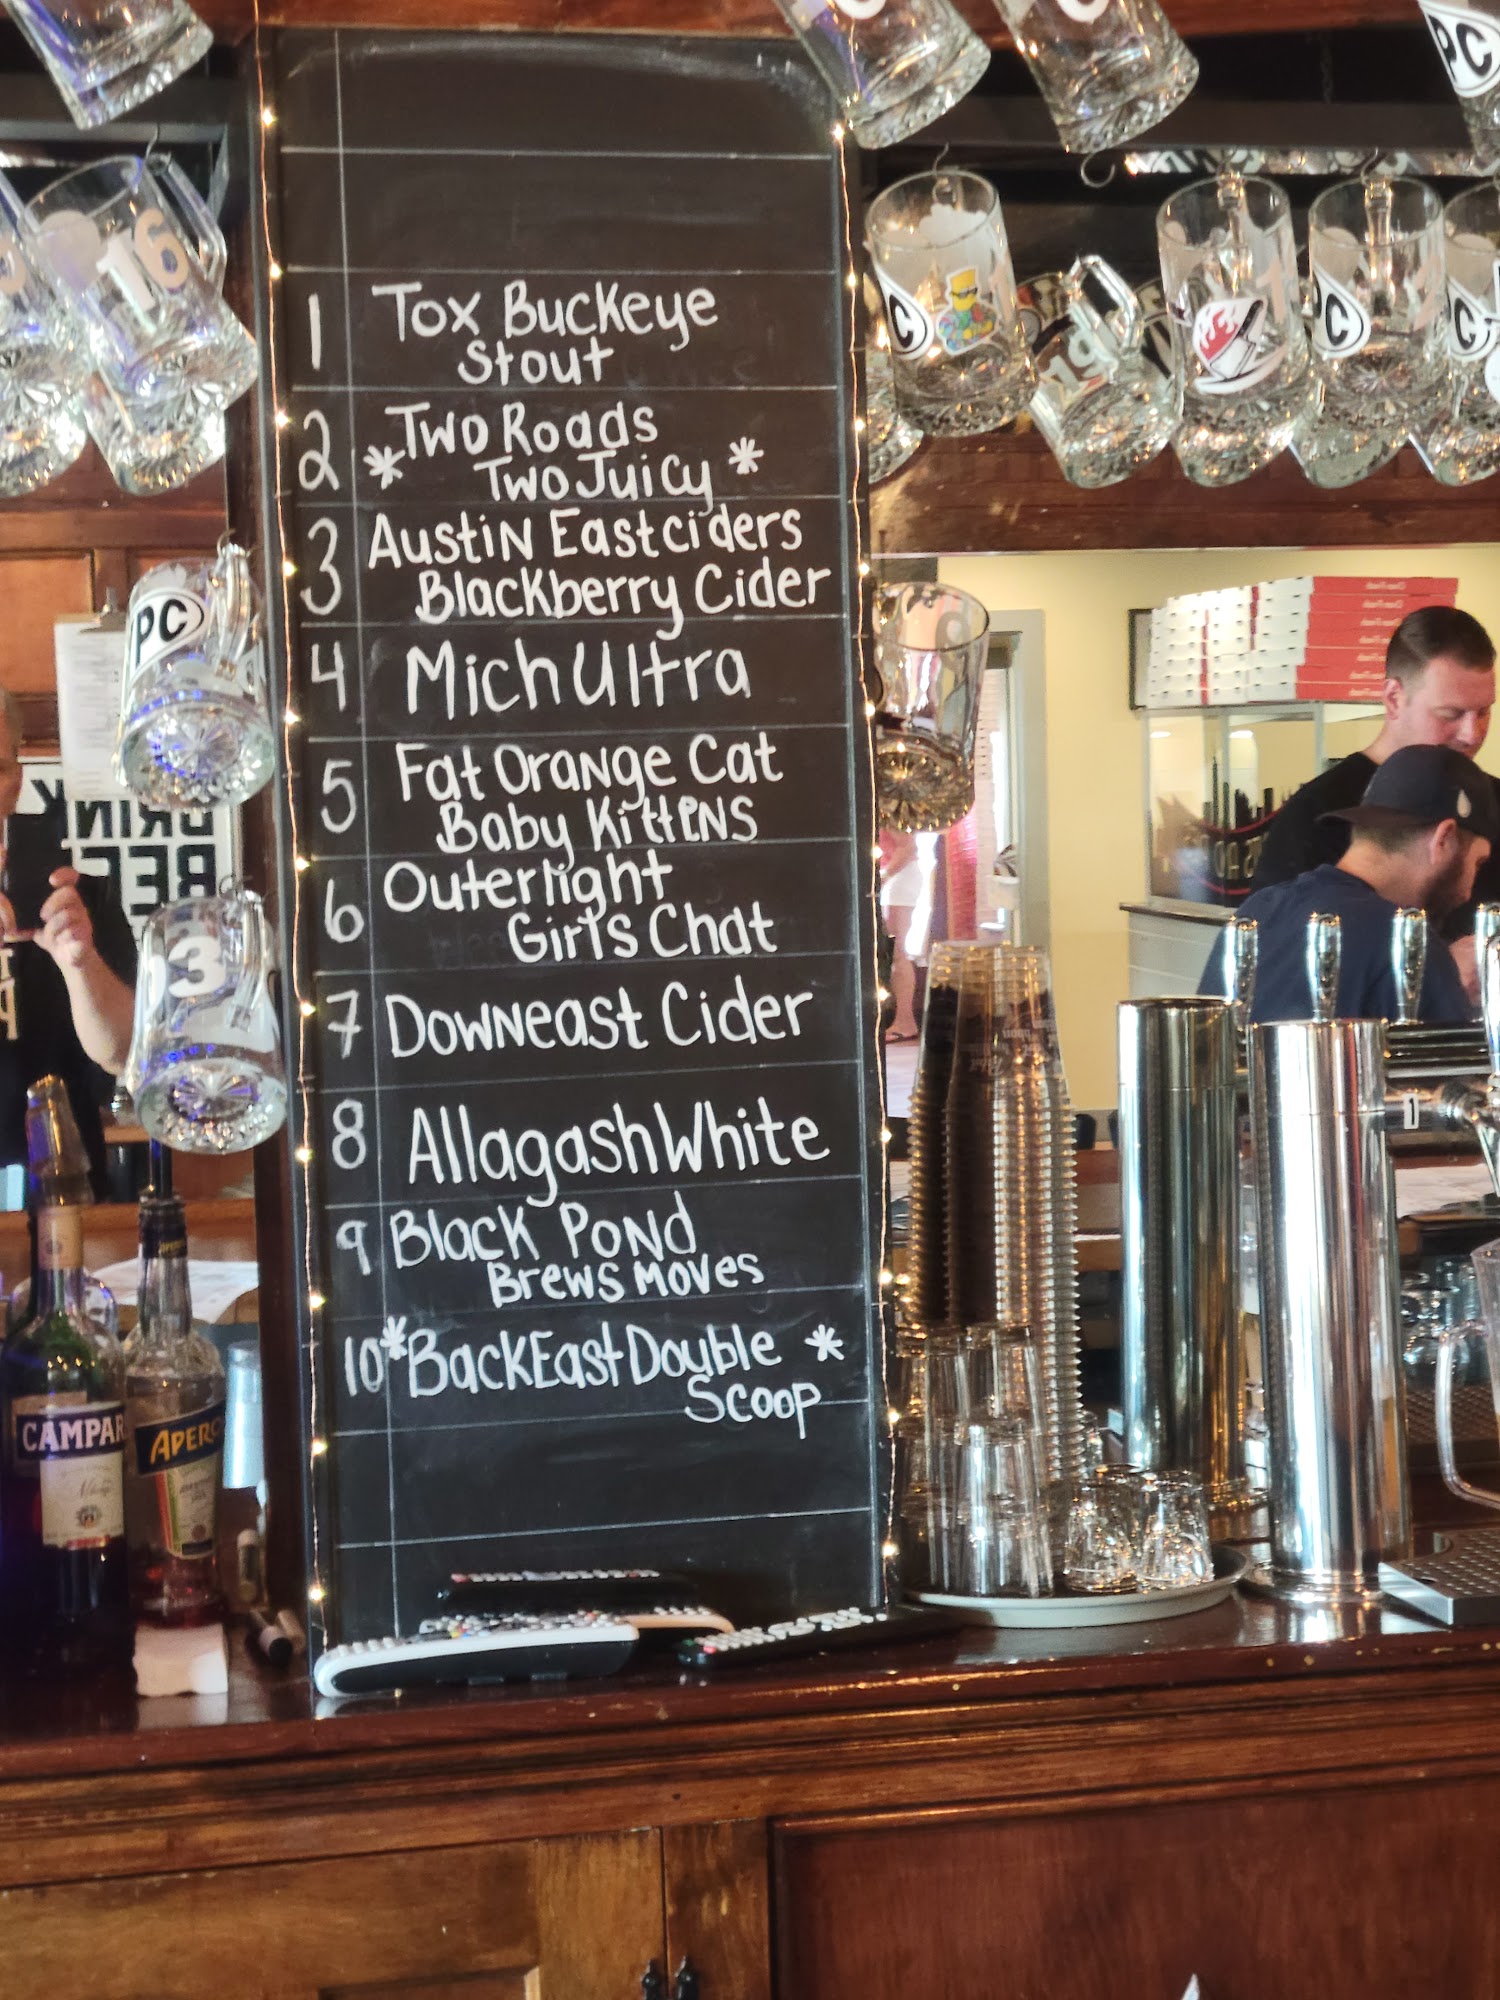 1 Tox Buckeye
Stout
2 Two Roads
* Two Juicy *
3 Austin Eastciders
Blackberry Cider
4 Mich Ultra
5 Fat Orange Cat
Baby Kittens
6 Outerlight
Girls Chat
7 Downeast Cider
8 Allagash White
9 Black Pond
Brews Moves
10 * BackEast Double *
Scoop
16
PC
PC
C
C
C
PC
3
CAMPAR
APERO
1